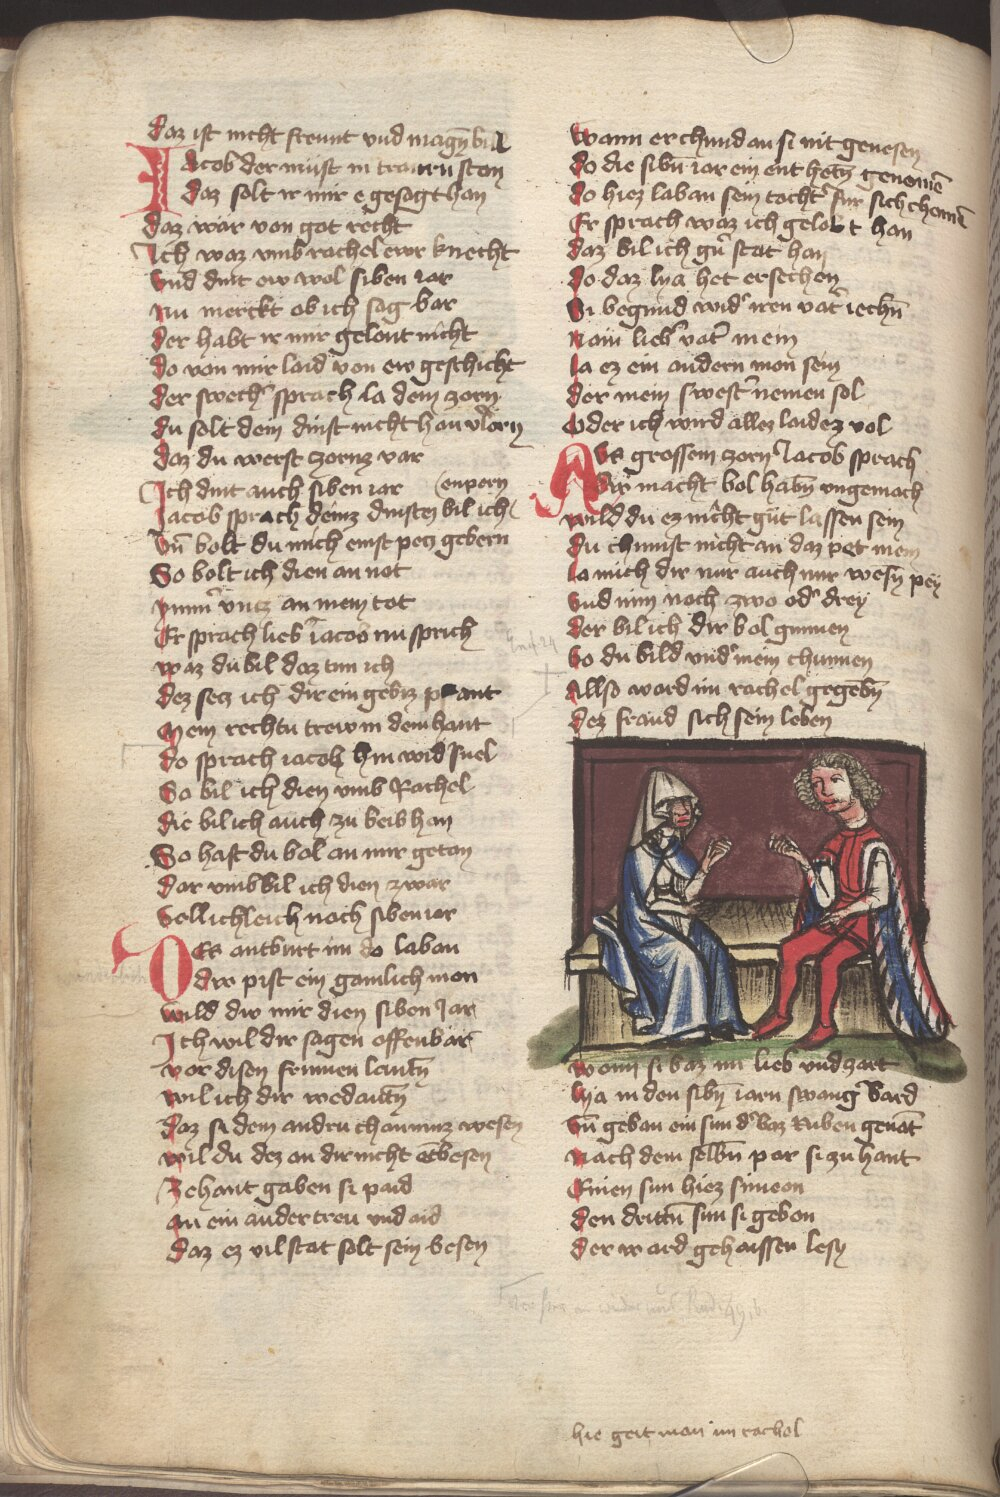 daz ist nicht frewnt vnd magn̄ bill
Jacob der müst in trawrn sten
daz solt ir mir e gesagt han
daz wär von got recht
Ich waz vmb rachel ewr knecht
Vnd dint ew wol siben iar
Nu merckt ob ich sag bar
der habt ir mir gelont nicht
do von mir laid von ew geschicht
der swecher sprach la dein zorn
du solt dein dinst nicht han vlorn
daz du werst zornz var
Ich dint auch siben iar
Jacob sprach deinz dinstez bil ich enpern
Vn̄ bolt du mich einst pey gebern
So bolt ich dien an not
ymmer vntz an mein tot
Er sprach lieber iacob nu sprich
waz du bil daz tun ich
dez secz ich dir ein gebiz phant
Mein rechtu trew in dein hant
do sprach iacob hin wider snel
So bil ich dien vmb Rachel
die bil ich auch zu beib han
So hast du bol an mir getan
dar vmb bil ich dien zwar
Vollichleich noch siben iar
Der antburt im do laban
dw pist ein gamlich man
wild dw mir dien siben Jar
Ich wil dir sagen offenbar
vor disen frunen lautn̄
wil ich dir
daz si dem andrn chain wesen
wil du dez an dir nicht besen
Zehant gaben si paid
an ein ander treu vnd aid
daz ez vil stat solt sein besen
Wann er chund an si nit genesen
do die sibn̄ iar ein ent hetn̄ genomē
do hiez laban sein tochter fur sich chomē
Er sprach waz ich gelobt han
daz bil ich gern stat han
do daz lya het ersechen
Si begund wider iren vater iechn̄
Nain lieber vater mein
la ez ein andern man sein
der mein swester nemen sol
Oder ich wird allez laidez vol
Aus grossem zorn Jacob sprach
dw macht bol habn̄ vngemach
wild du ez nicht güt lassen sein
du chumst nicht an daz pet mein
la mich dir nur auch nur wesn̄ pey
Vnd nim noch zwo oder drey
der bil ich dir bol gunnen
So du bild vnder mein chunnen
Allso ward im rachel gegebn̄
dez fraud sich sein leben
Wenn si baz im lieb vnd zart
lya in den sibn̄ iarn swanger bard
Vn̄ geban ein sun der baz Ruben genāt
Nach dem selbn̄ par si zu hant
Einen sun hiez simeon
den drittn̄ sun si gebon
der ward gehaissen lesy
hie geit man im rachel